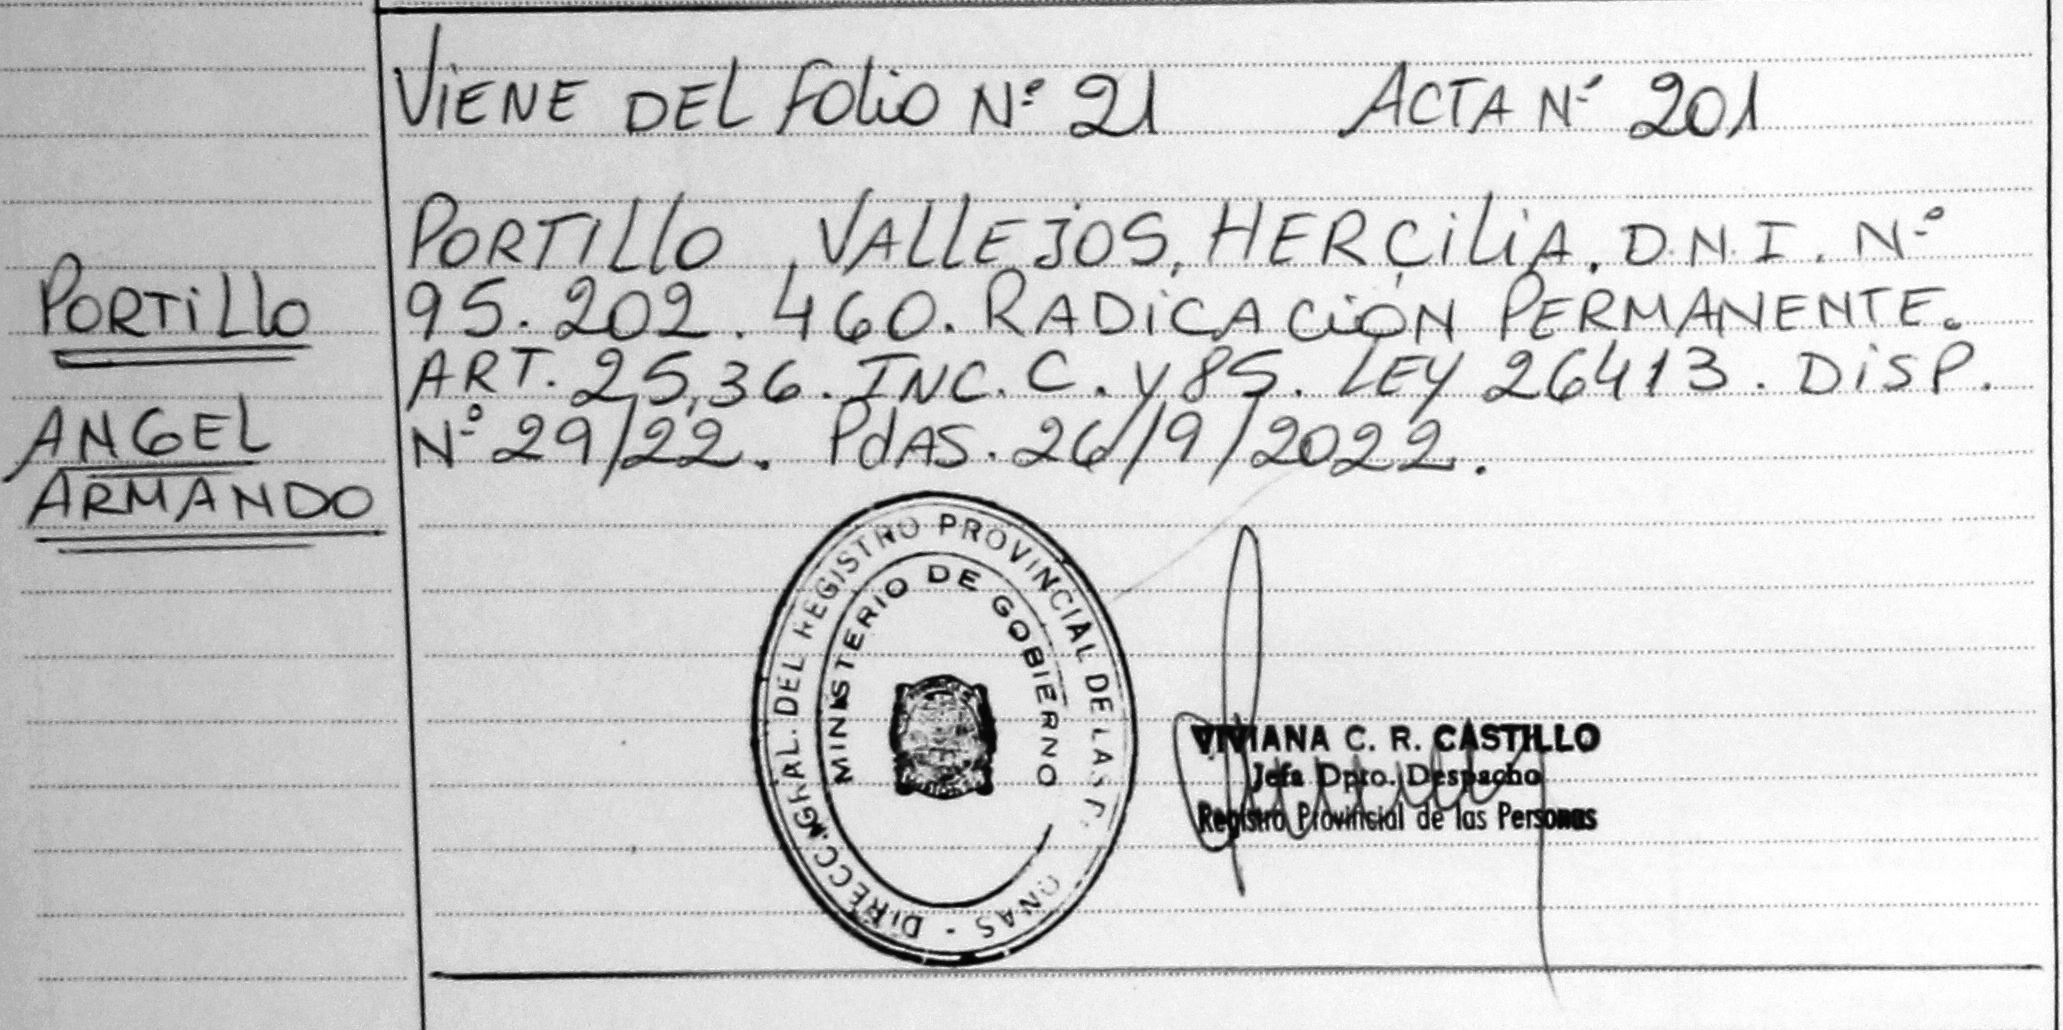 VIENE DEL FOLIO Nº 21 ACTA Nº 201
PORTILLO, VALLEJOS, HERCILIA. D.N.I. Nº
95.202.460. RADICACIÓN PERMANENTE.
ART. 25,36. INC. C. Y 85. LEY 26413. DISP.
Nº 29/22. PDAS. 26/9/2022.
PORTILLO
ANGEL
ARMANDO
DIRECC. GRAL. DEL REGISTRO PROVINCIAL DE LAS
MINISTERIO DE GOBIERNO
VIVIANA C. R. CASTILLO
Jefa Dpto. Despacho
Registro Provincial de las Personas